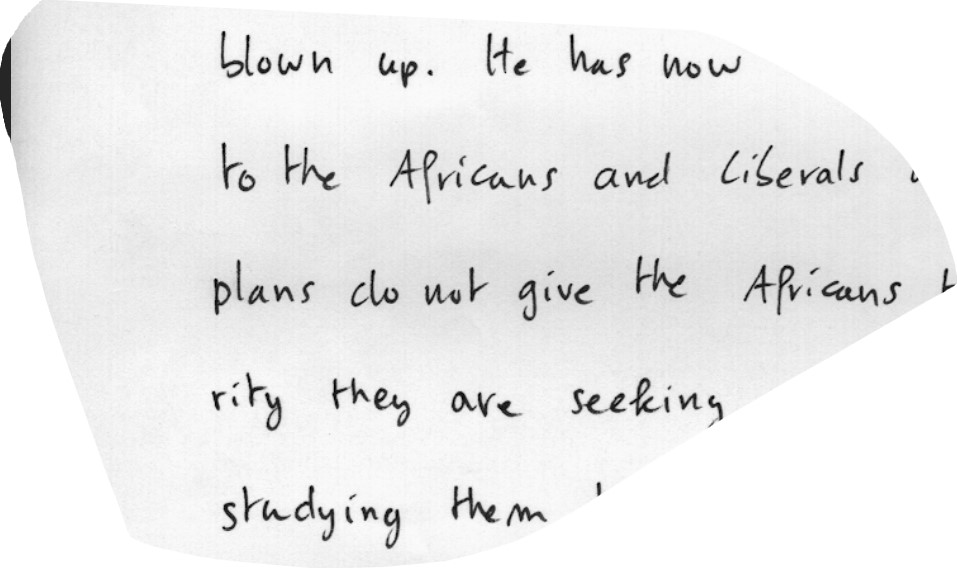 blown up. He has now
to the Africans and Liberals
plans do not give the Africans
rity they are seeking
studying them